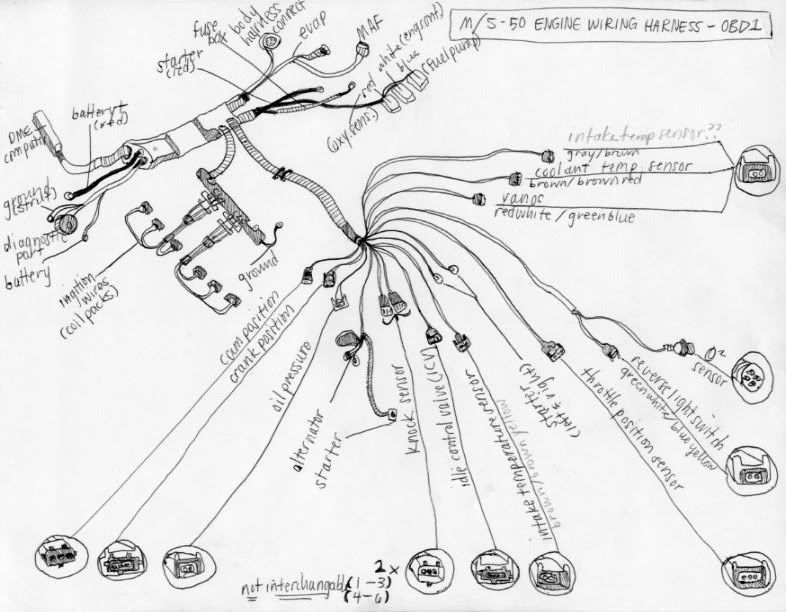 M/S-50 ENGINE WIRING HARNESS - OBD1
fuse box
body harness connect
evap
MAF
starter (red)
red white (eng. mnt)
blue (fuel pump)
(oxy. sens.)
DME computer
battery + (red)
ground (strut)
diagnostic port
battery
ingition wires (coil packs)
ground
intake temp sensor??
gray/brown
coolant temp sensor
brown/brown red
vanos
red white / green blue
cam position
crank position
oil pressure
alternator
starter
knock sensor
idle control valve (ICV)
intake temperature sensor
brown/brown yellow
starter
(left & right)
throttle position sensor
reverse light switch
green white/blue yellow
O2 sensor
2x
not interchangable (1-3)
(4-6)